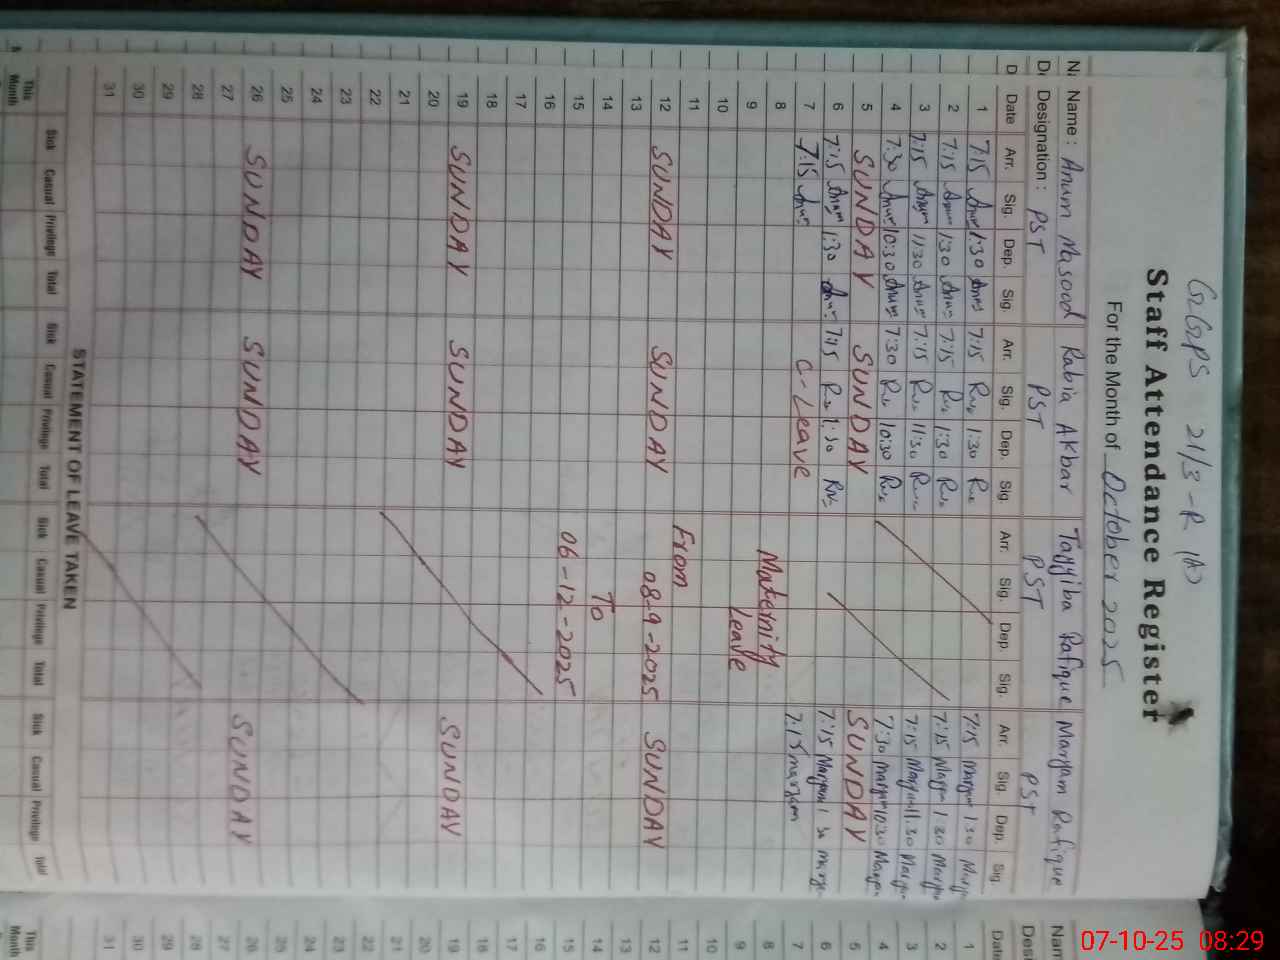 GGPS 21/3-R (A)
Staff Attendance Register
For the Month of October 2025
Name : Anum Masood Rabia Akbar Tayyiba Rafique Maryam Rafique
Designation : PST PST PST PST
Date Arr. Sig. Dep. Sig. Arr. Sig. Dep. Sig. Arr. Sig. Dep. Sig. Arr. Sig. Dep. Sig.
1 7:15 Anum 1:30 Anum 7:15 1:30 7:15 Maryam 1:30 Maryam
2 7:15 Anum 1:30 Anum 7:15 1:30 7:15 Maryam 1:30 Maryam
3 7:15 Anum 11:30 Anum 7:15 11:30 7:15 Maryam 11:30 Maryam
4 7:30 Anum 10:30 Anum 7:30 10:30 7:30 Maryam 10:30 Maryam
5 SUNDAY SUNDAY SUNDAY
6 7:15 Anum 1:30 Anum 7:15 1:30 7:15 Maryam 1:30 Maryam
7 7:15 Anum C-Leave 7:15 Maryam
8 Maternity
9 Leave
10
11 From
12 SUNDAY SUNDAY 08-9-2025 SUNDAY
13
14 To
15 06-12-2025
16
17
18
19 SUNDAY SUNDAY SUNDAY
20
21
22
23
24
25
26 SUNDAY SUNDAY SUNDAY
27
28
29
30
31
STATEMENT OF LEAVE TAKEN
Sick Casual Privilege Total Sick Casual Privilege Total Sick Casual Privilege Total Sick Casual Privilege Total
This Month
Name
Date
1
2
3
4
5
6
7
8
9
10
11
12
13
14
15
16
17
18
19
20
21
22
23
24
25
26
27
28
29
30
31
This Month
07-10-25 08:29